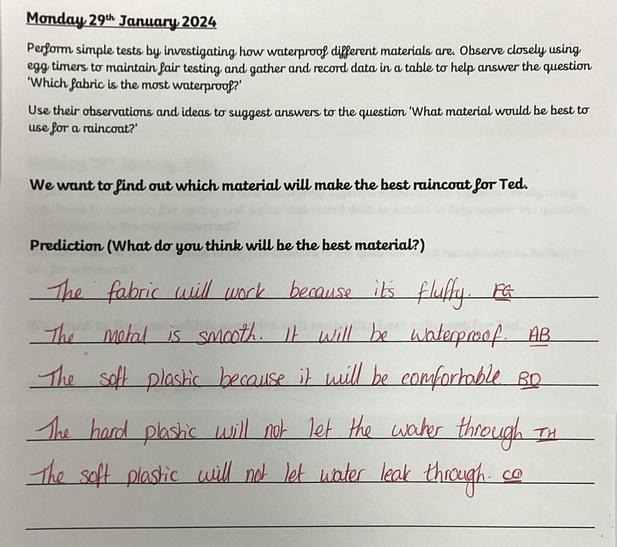 Monday 29th January 2024
Perform simple tests by investigating how waterproof different materials are. Observe closely using
egg timers to maintain fair testing and gather and record data in a table to help answer the question
'Which fabric is the most waterproof?'
Use their observations and ideas to suggest answers to the question 'What material would be best to
use for a raincoat?'
We want to find out which material will make the best raincoat for Ted.
Prediction (What do you think will be the best material?)
The fabric will work because its fluffy. FG
The metal is smooth. It will be waterproof. AB
The soft plastic because it will be comfortable BD
The hard plastic will not let the water through TH
The soft plastic will not let water leak through. CO